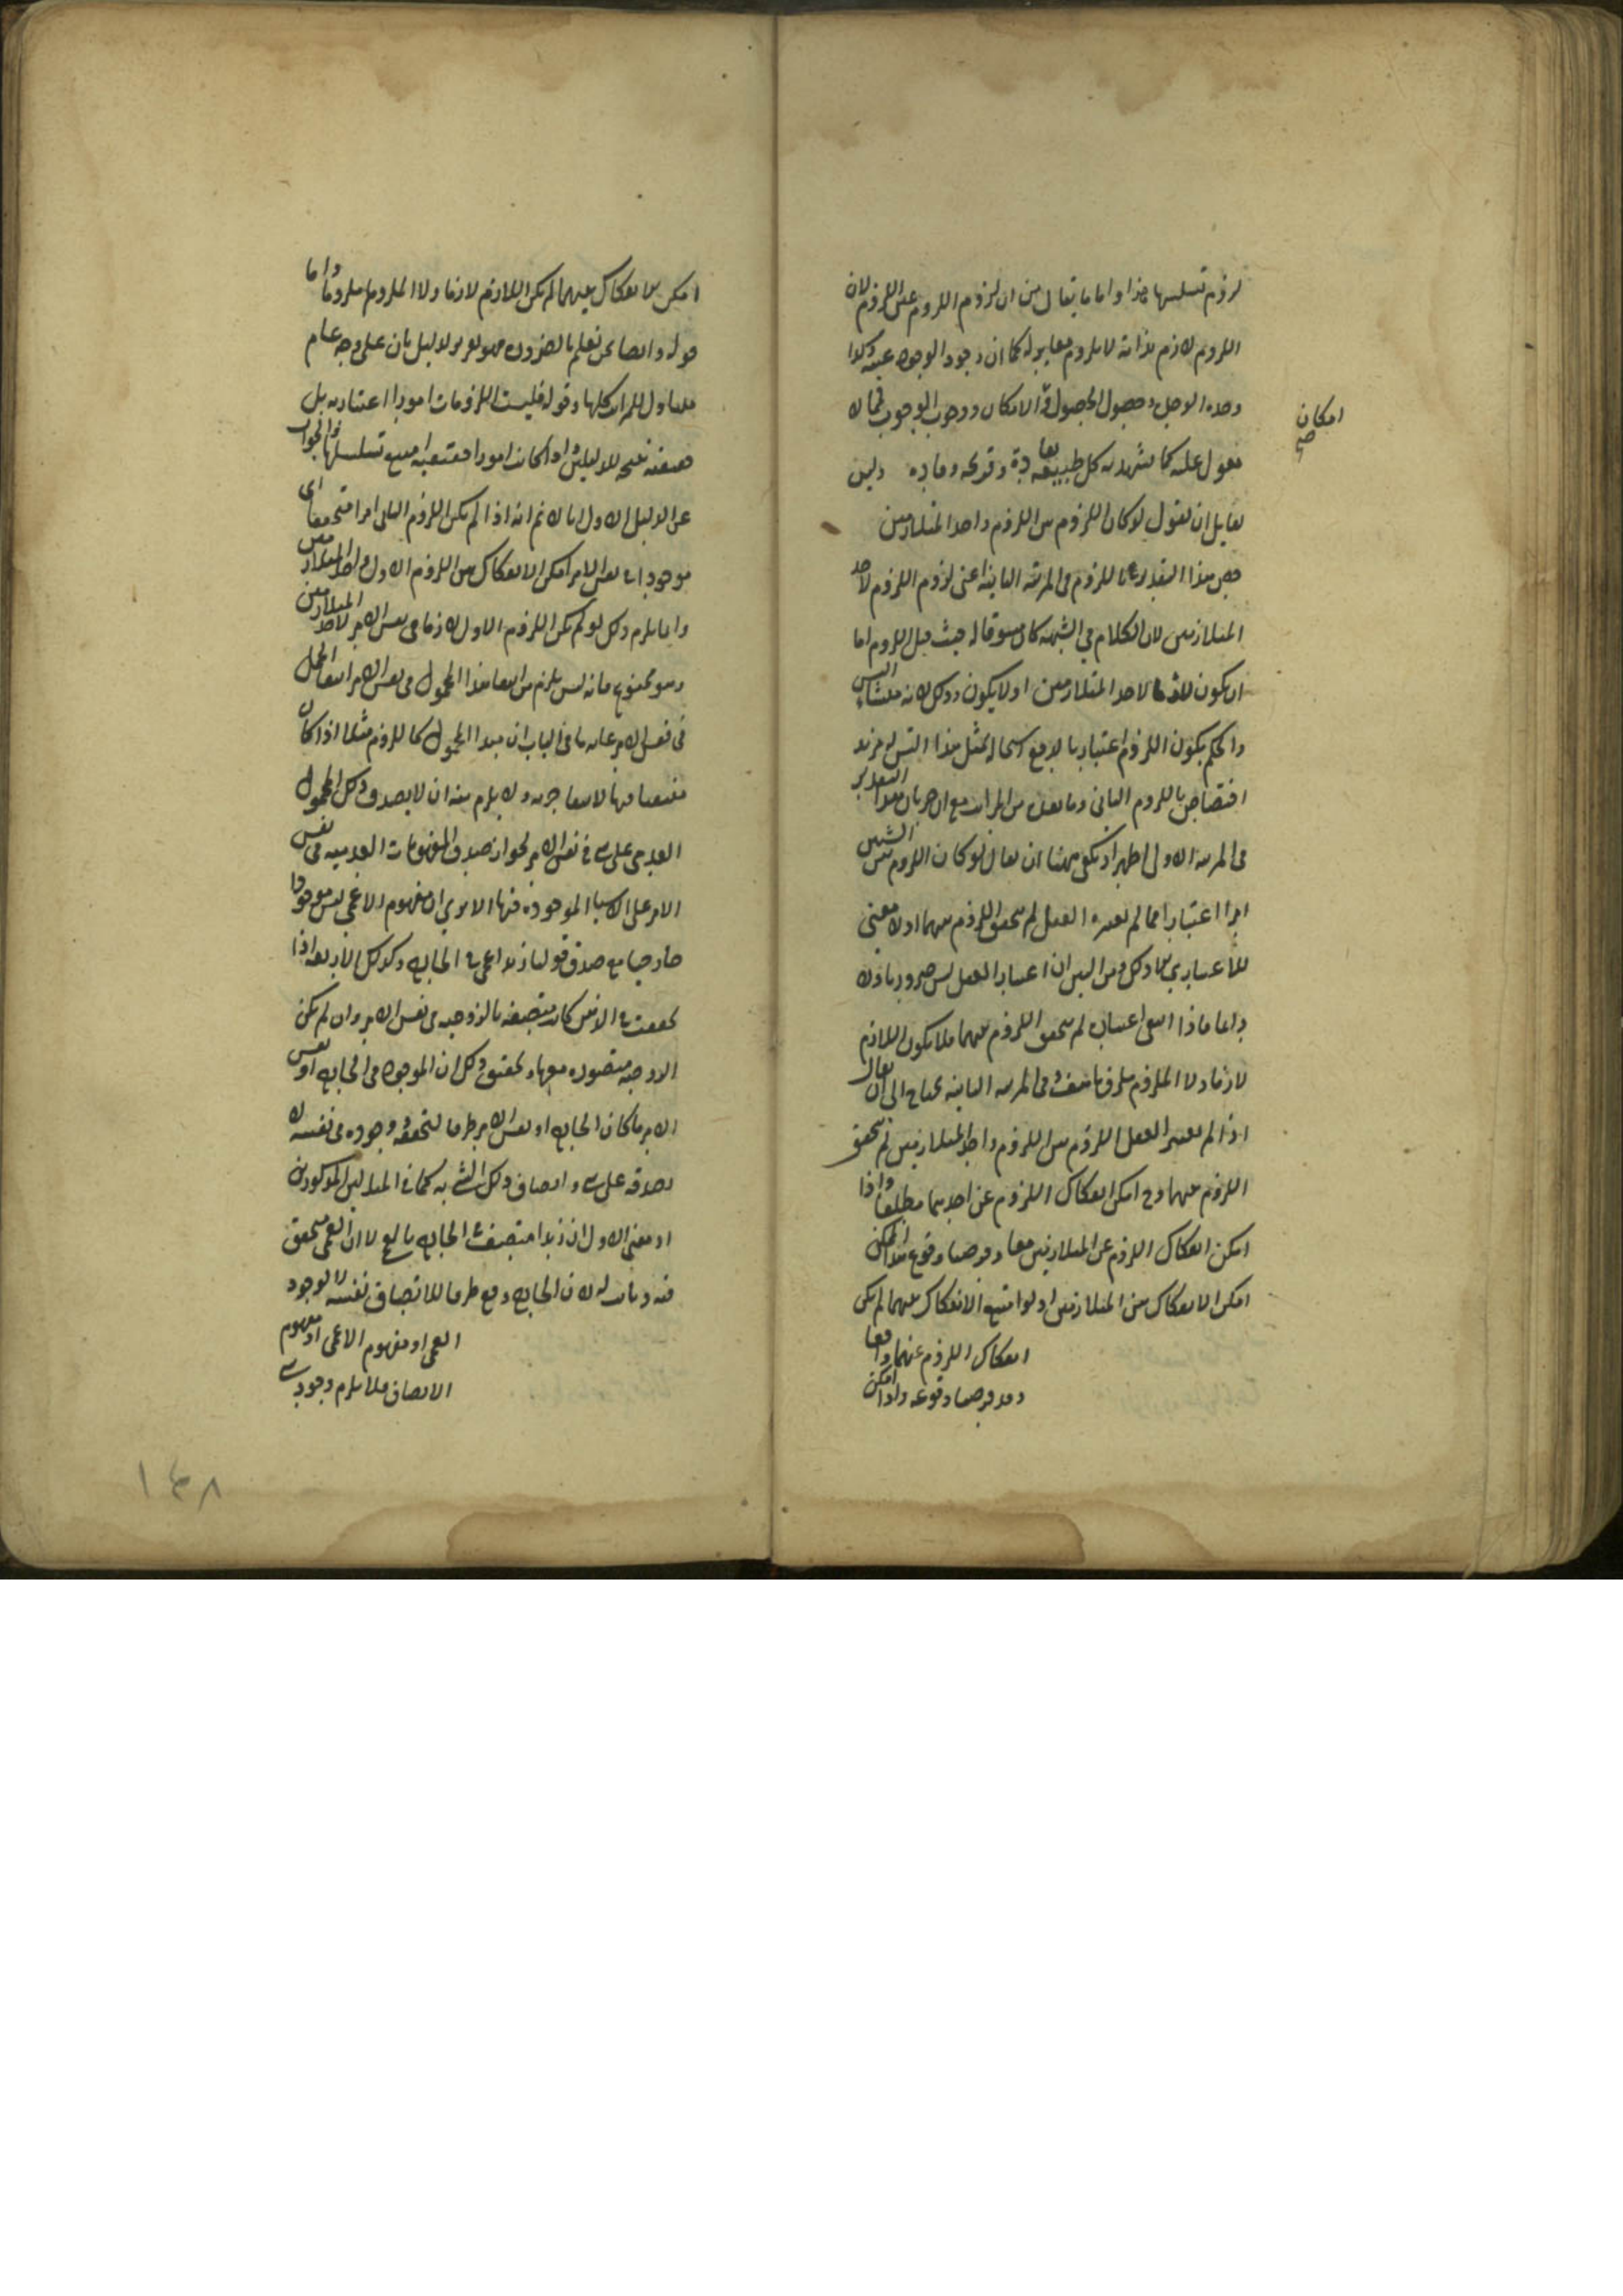 لزوم تسلسلها هذا واما ما يقال من ان لزوم اللزوم عين اللزوم لان
اللزوم لازم بذاته لا بلزوم مغاير له كما ان وجود الوجود عينه وكذا
وحدة الوحدة وحصول الحصول و الامكان ووجوب الوجوب فمما لا
امكان
صح
تعويل عليه كما يشهد به كل طبيعة وليس
لقايل ان يقول لو كان اللزوم بين اللزوم واحد المتلازمين
خص هذا التقدير باللزوم في المرتبة الثانية اعنى لزوم اللزوم لاحد
المتلازمين لان الكلام في الشبهة كان مسوقا له حيث قيل اللزوم اما
ان يكون لازما لاحد المتلازمين او لا يكون وذلك لانه
والحكم بكون اللزوم اعتباريا لا يدفع استحالة مثل هذا التسلسل
اختصاص باللزوم الثانى وما بعده من المراتب مع ان جريان هذا التقدير
فى المرتبة الاولى اظهر اذ يكفى هناك ان يقال لو كان اللزوم بين الشيئين
امرا اعتباريا فما لم يعتبره العقل لم يتحقق اللزوم بينهما اذ لا معنى
للاعتبارى الا ذلك ومن البين ان اعتبار العقل ليس ضروريا ولا
دايما فاذا انتفى اعتباره لم يتحقق اللزوم بينهما فلا يكون اللازم
لازما ولا الملزوم ملزوما وفى المرتبة الثانية يحتاج الى ان يقال
اذا لم يعتبر العقل اللزوم بين اللزوم واحد المتلازمين لم يتحقق
اللزوم بينهما وح امكن انفكاك اللزوم عن احدهما مطلقا واذا
امكن انفكاك اللزوم عن المتلازمين معا وفرضنا وقوع هذا الممكن
امكن الانفكاك بين المتلازمين اذ لو امتنع الانفكاك بينهما لم يكن
انفكاك اللزوم عنهما واقعا
وقد فرضنا وقوعه واذا امكن
امكن الانفكاك بينهما لم يكن اللازم لازما ولا الملزوم ملزوما واما
قوله وايضا نحن نعلم بالضرورة فهو تقرير للدليل الثانى على وجه عام
متناول للمراتب كلها وقوله فليست اللزومات امورا اعتبارية بل
حقيقية نتيجة للدليلين واذا كانت امورا حقيقية امتنع تسلسلها والجواب
عن الدليل الاول انا لا نم انه اذا لم يكن اللزوم الثانى امرا متحققا اى
موجودا فى نفس الامر امكن الانفكاك بين اللزوم الاول واحد المتلازمين
وانما يلزم ذلك لو لم يكن اللزوم الاول لازما فى نفس الامر لاحد المتلازمين
وهو ممنوع فانه ليس يلزم من انتفاء مبدا المحمول فى نفس الامر انتفاء الحمل
فى نفس الامر غاية ما فى الباب ان مبدا المحمول كاللزوم مثلا اذا كان
منتفيا فيها لانتفاء جزءه ولا يلزم منه ان لا يصدق ذلك المحمول
العدمى على شىء فى نفس الامر لجواز صدق المفهومات العدمية فى نفس
الامر على الاشياء الموجودة فيها الا ترى ان مفهوم الاعمى ليس موجودا
خارجيا مع صدق قولنا زيد اعمى فى الخارج وكذلك الاربعة اذا
تحققت فى الذهن كانت متصفة بالزوجية فى نفس الامر وان لم يكن
الزوجية متصورة معها وتحقيق ذلك ان الموجود فى الخارج او نفس
الامر ما كان الخارج او نفس الامر ظرفا لتحققه ووجوده فى نفسه لا
لصدقه على شىء واتصاف ذلك الشىء به كما فى المثالين المذكورين
اذ معنى الاول ان زيدا متصف فى الخارج بالعمى لا ان العمى متحقق
فيه وثابت له لان الخارج وقع ظرفا للاتصاف نفسه لا لوجود
العمى او مفهوم الاعمى او مفهوم
الاتصاف فلا يلزم وجود شىء
١٤٨